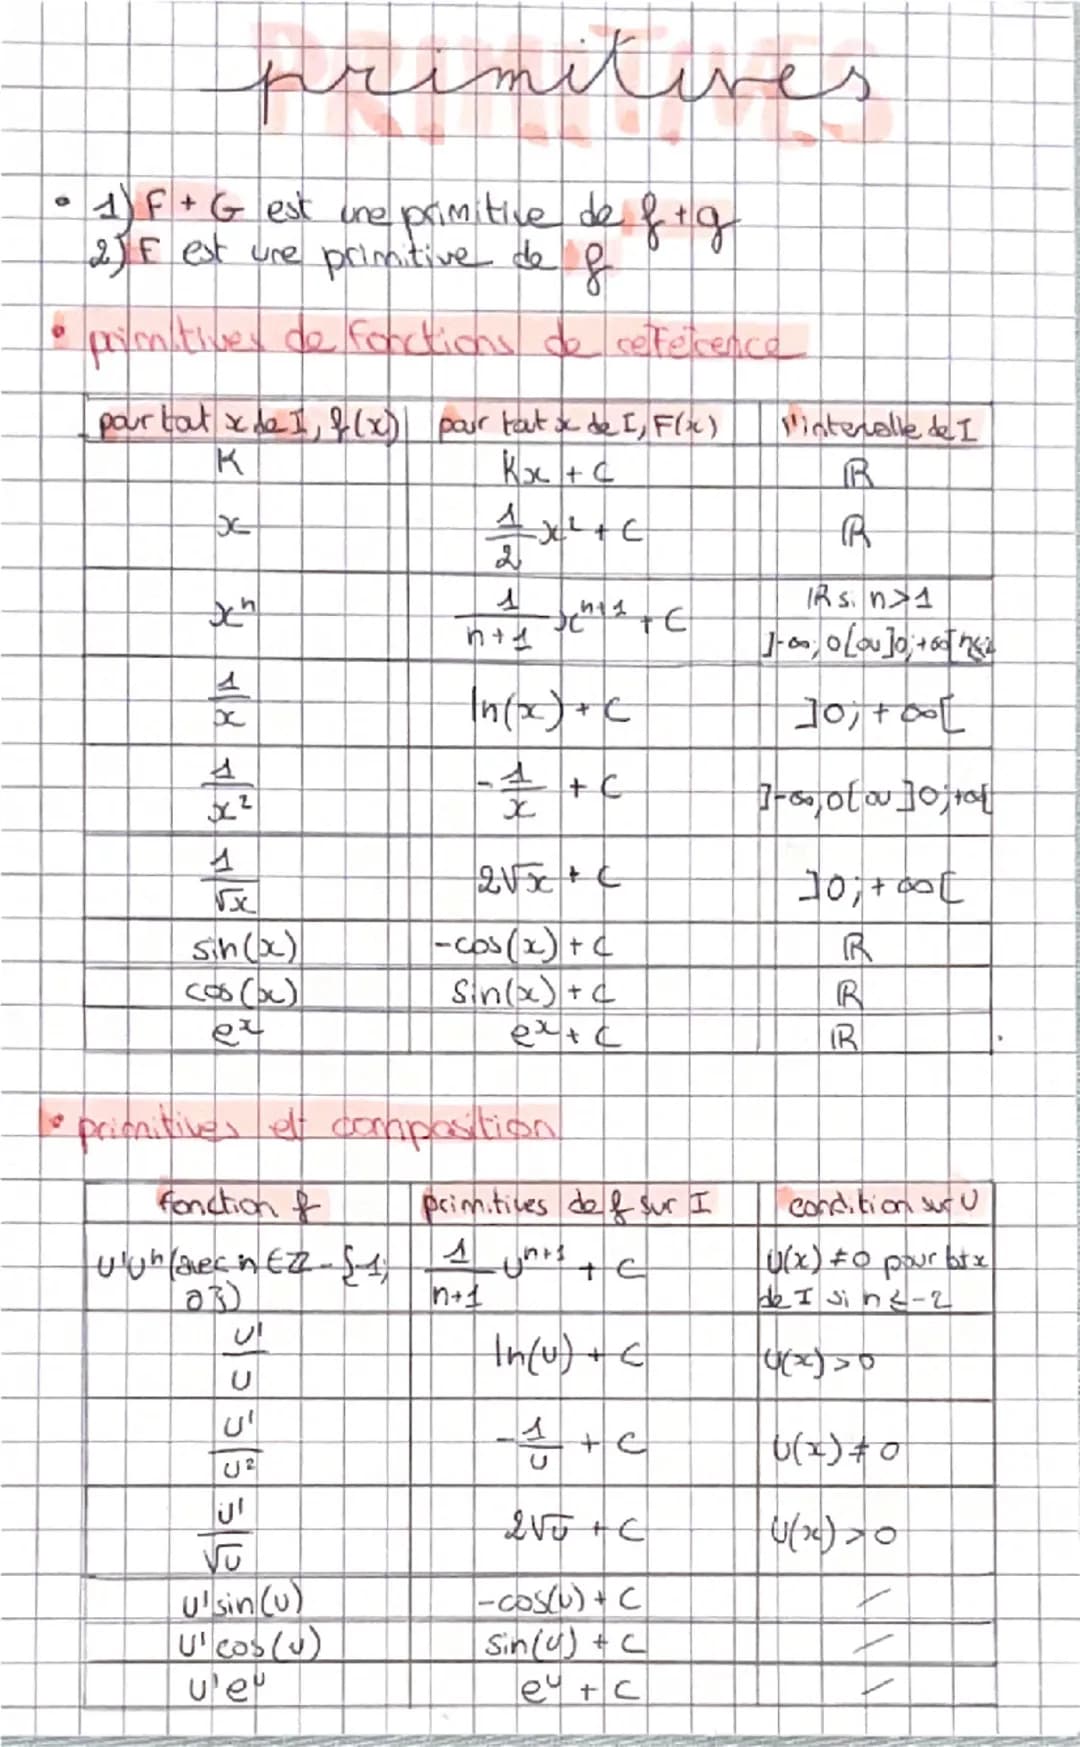 primitives
PRIMITIVES
• 1) F + G est une primitive de f + g
2) F est une primitive de f
• primitives de fonctions de référence
pour tout x de I, f(x) | pour tout x de I, F(x) | l'intervalle de I
K | Kx + C | ℝ
x | 1/2 x² + C | ℝ
xⁿ | 1/(n+1) xⁿ⁺¹ + C | ℝ si n>1 ]-∞; 0[ ou ]0; +∞[
1/x | ln(x) + C | ]0; + ∞[
1/x² | -1/x + C | ]-∞; 0[ ou ]0; +∞[
1/√x | 2√x + C | ]0; + ∞[
sin(x) | -cos(x) + C | ℝ
cos(x) | sin(x) + C | ℝ
eˣ | eˣ + C | ℝ
• primitives et composition
fonction f | primitives de f sur I | condition sur U
U'Uⁿ (avec n ∈ ℤ - {-1; 0}) | 1/(n+1) Uⁿ⁺¹ + C | U(x) ≠ 0 pour tt x de I si n ≤ -2
U'/U | ln(U) + C | U(x) > 0
U'/U² | -1/U + C | U(x) ≠ 0
U'/√U | 2√U + C | U(x) > 0
U'sin(U) | -cos(U) + C | /
U'cos(U) | sin(U) + C | /
U'eᵁ | eᵁ + C | /